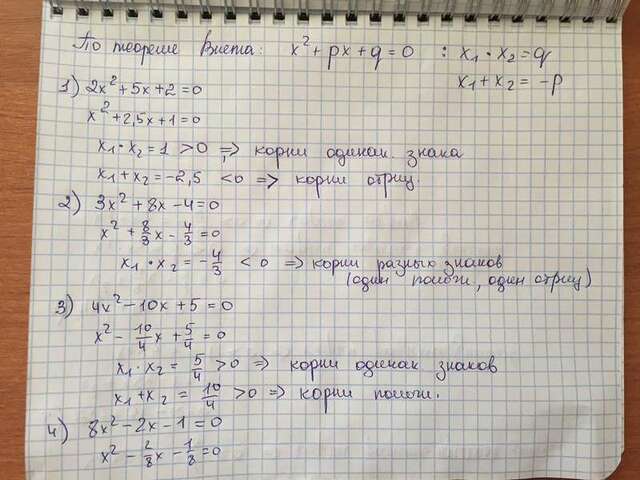 По теореме Виета: x² + px + q = 0 : x₁ · x₂ = q
x₁ + x₂ = -p
1) 2x² + 5x + 2 = 0
x² + 2,5x + 1 = 0
x₁ · x₂ = 1 > 0 => корни одинак. знака
x₁ + x₂ = -2,5 < 0 => корни отриц.
2) 3x² + 8x - 4 = 0
x² + 8/3 x - 4/3 = 0
x₁ · x₂ = -4/3 < 0 => корни разных знаков
(один полож, один отриц)
3) 4x² - 10x + 5 = 0
x² - 10/4 x + 5/4 = 0
x₁ · x₂ = 5/4 > 0 => корни одинак знаков
x₁ + x₂ = 10/4 > 0 => корни полож.
4) 8x² - 2x - 1 = 0
x² - 2/8 x - 1/8 = 0